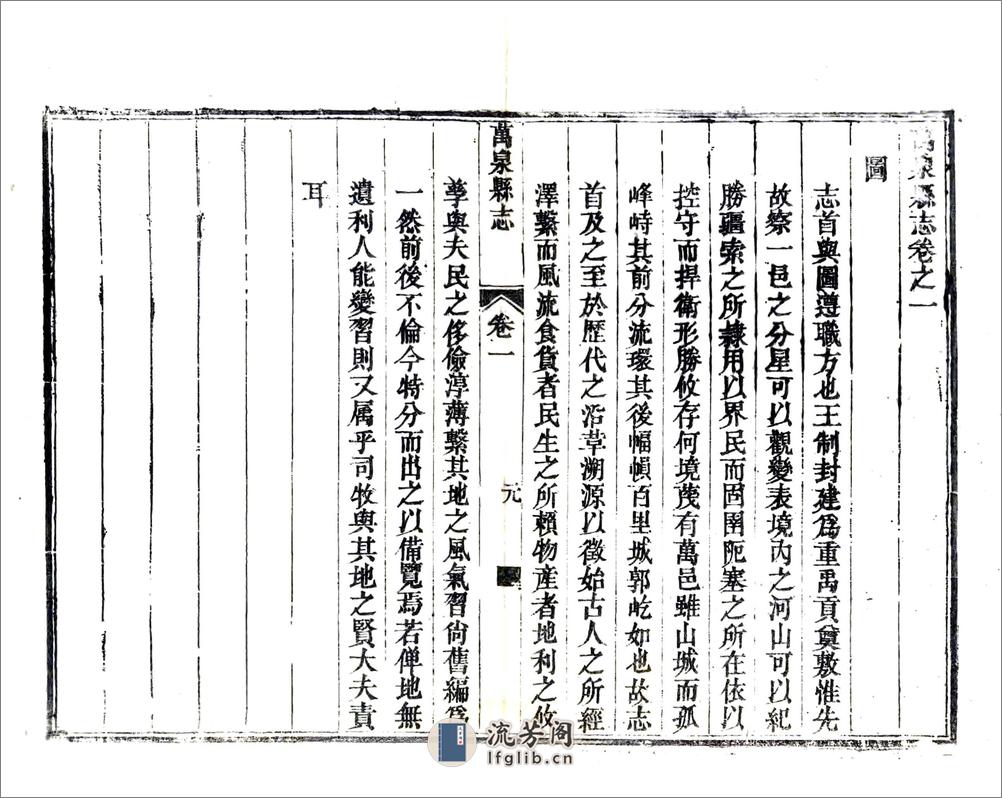 萬泉縣志卷之一
圖
志首輿圖遵職方也王制封建爲重禹貢奠敷惟先
故察一邑之分星可以觀變表境內之河山可以紀
勝疆索之所隸用以界民而固圉阨塞之所在依以
控守而捍衛形勝攸存何境蔑有萬邑雖山城而孤
峰峙其前分流環其後幅幀百里城郭屹如也故志
首及之至於歷代之沿革溯源以徵始古人之所經
澤繫而風流食貨者民生之所賴物産者地利之攸
萬泉縣志
卷一
元
孳與夫民之侈儉淳薄繫其地之風氣習尙舊編爲
一然前後不倫今特分而出之以備覽焉若俾地無
遺利人能變習則又属乎司牧與其地之賢大夫責
耳
流芳阁
lfglib.cn